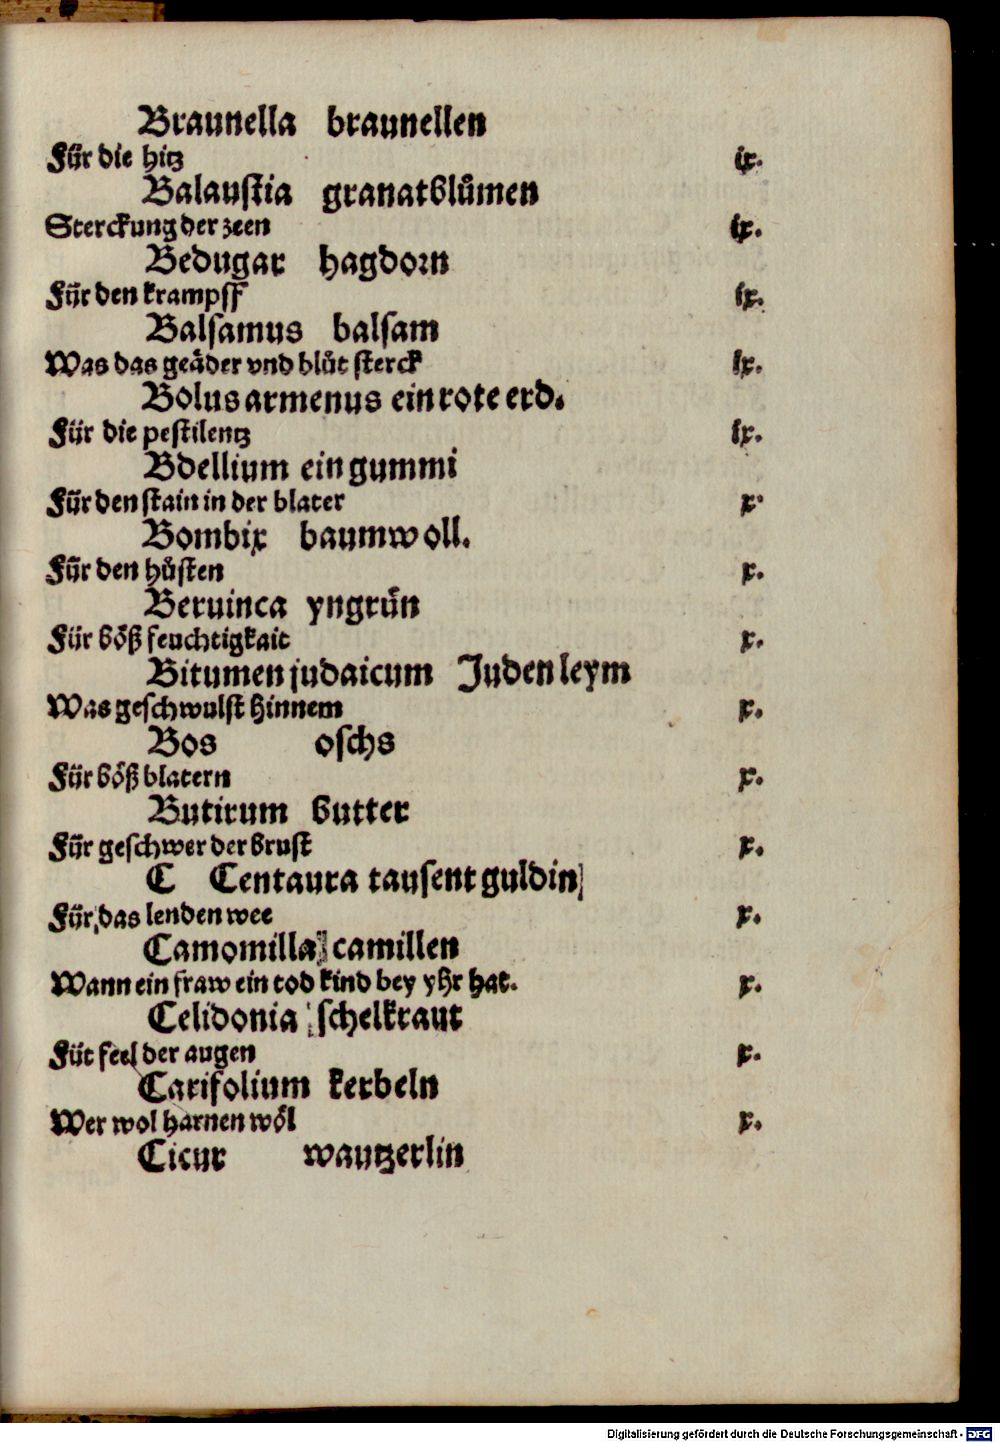 Braunella braunellen
Für die hitz ix.
Balaustia granatblůmen
Sterckung der zeen ix.
Bedugar hagdorn
Für den krampff ix.
Balsamus balsam
Was das geäder vnd blůt sterck ix.
Bolus armenus ein rote erd.
Für die pestilentz ix.
Bdellium ein gummi
Für den stain in der blater x.
Bombix baumwoll.
Für den hůsten x.
Beruinca yngrün
Für böß feuchtigkait x.
Bitumen judaicum Juden leym
Was geschwulst hinnem x.
Bos oschs
Für böß blatern x.
Butirum butter
Für geschwer der brust x.
C Centaura tausent guldin
Für das lenden wee x.
Camomilla camillen
Wann ein fraw ein tod kind bey yhr hat. x.
Celidonia schelkraut
Füt feel der augen x.
Carifolium kerbeln
Wer wol harnen wöl x.
Cicur wautzerlin
Digitalisierung gefördert durch die Deutsche Forschungsgemeinschaft - DFG